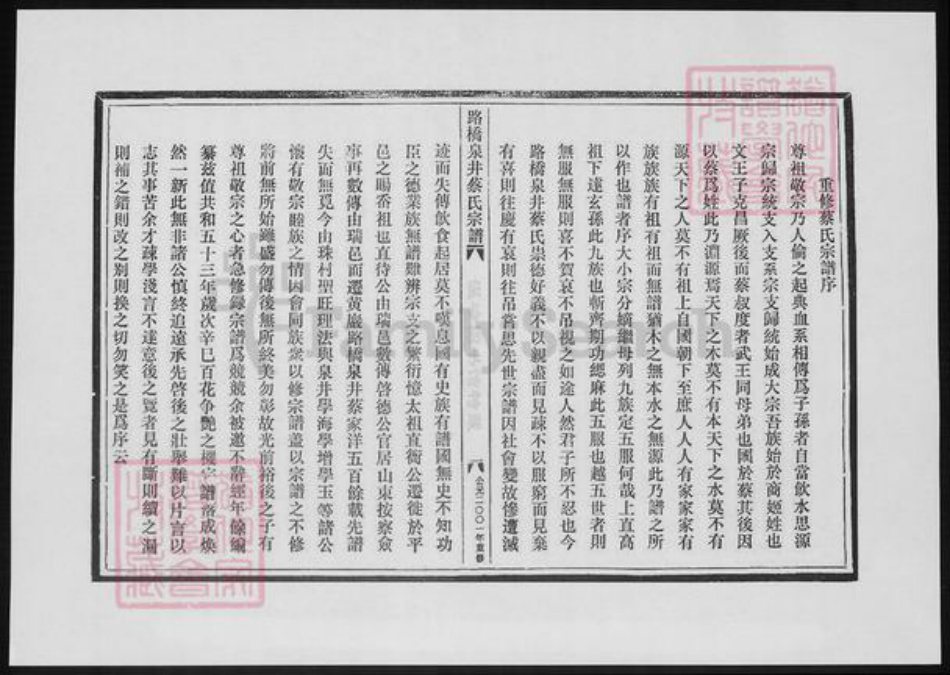 重修蔡氏宗譜序
尊祖敬宗乃人倫之起典血系相傳爲子孫者自當飲水思源
宗歸宗統支入支系宗支歸統始成大宗吾族始於商姬姓也
文王子克昌厥後而蔡叔度者武王同母弟也國於蔡其後因
以蔡爲姓此乃淵源焉天下之木莫不有本天下之水莫不有
源天下之人莫不有祖上自國朝下至庶人人人有家家家有
族族族有祖有祖而無譜猶木之無本水之無源此乃譜之所
以作也譜者序大小宗分嫡繼母列九族定五服何哉上直高
祖下逮玄孫此九族也斬齊期功緦麻此五服也越五世者則
無服無服則喜不賀哀不吊視之如途人然君子所不忍也今
路橋泉井蔡氏崇德好義不以親盡而見疎不以服窮而見棄
有喜則往慶有哀則往吊嘗思先世宗譜因社會變故慘遭滅
路橋泉井蔡氏宗譜
序
八
公元二〇〇一年重修
迹而失傳飲食起居莫不嘆息國有史族有譜國無史不知功
臣之德業族無譜難辨宗支之繁衍憶太祖直衡公遷徙於平
邑之暘岙祖也直待公由瑞邑數傳啓德公官居山東按察僉
事再數傳由瑞邑而遷黃巖路橋泉井蔡家洋五百餘載先譜
失而無覓今由珠村聖旺理法與泉井學海學增學玉等諸公
懷有敬宗睦族之情因會同族衆以修宗譜蓋以宗譜之不修
將前無所始雖盛勿傳後無所終美勿彰故光前裕後之子有
尊祖敬宗之心者急修錄宗譜爲競競余被邀不辭經年餘編
纂茲值共和五十三年歲次辛巳百花争艷之機宗譜落成煥
然一新此無非諸公慎終追遠承先啓後之壯舉難以片言以
志其事苦余才疎學淺言不達意後之覽者見有斷則續之漏
則補之錯則改之別則換之切勿笑之是爲序云
FamilySearch